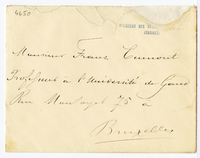 4650
Monsieur Franz Cumont
Professeur à l'Université de Gand
Rue Montoyer 75
Bruxelles